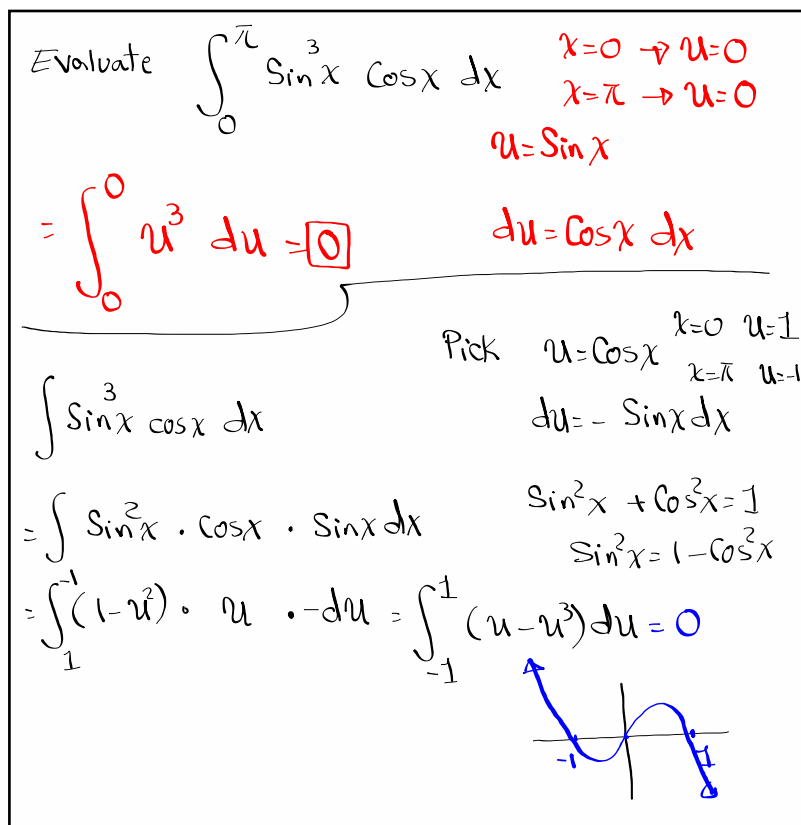 Evaluate ∫₀^π Sin³x Cosx dx
x=0 → u=0
x=π → u=0
u=Sin x
= ∫₀⁰ u³ du = 0
du = Cosx dx
Pick u=Cosx x=0 u=1
x=π u=-1
∫ Sin³x cosx dx
du = - Sinx dx
= ∫ Sin²x · Cosx · Sinx dx
Sin²x + Cos²x = 1
Sin²x = 1 - Cos²x
= ∫₁^-1 (1-u²) · u · -du = ∫₋₁^1 (u-u³) du = 0
-1 1